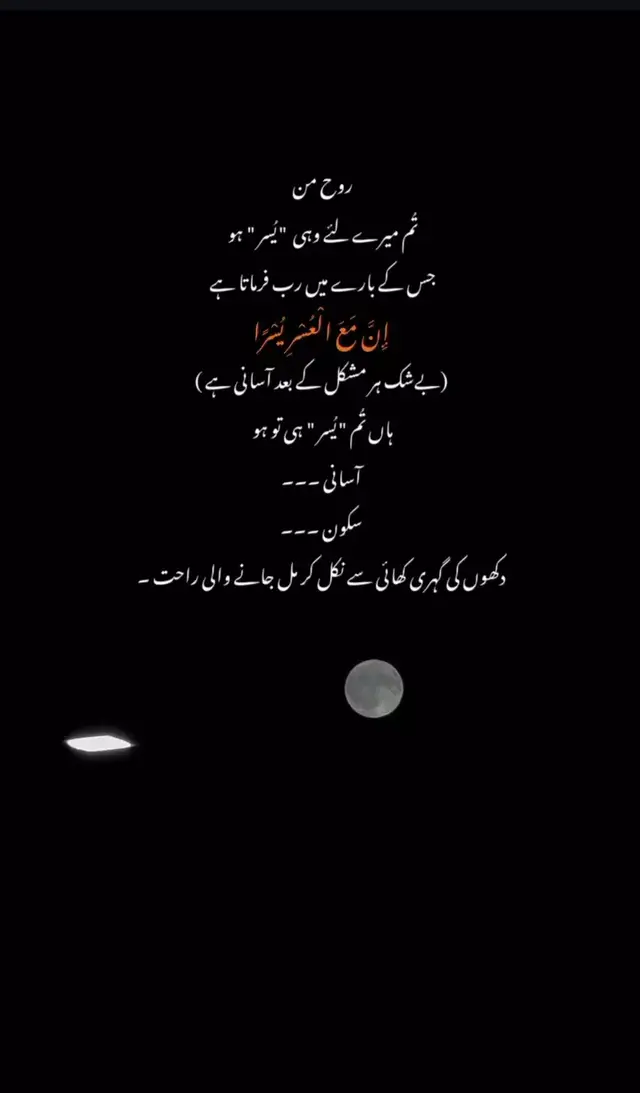 روح من
تُم میرے لئے وہی "یُسر" ہو
جس کے بارے میں رب فرماتا ہے
إِنَّ مَعَ الْعُسْرِ يُسْرًا
(بے شک ہر مشکل کے بعد آسانی ہے)
ہاں تُم "یُسر" ہی تو ہو
آسانی ---
سکون ---
دکھوں کی گہری کھائی سے نکل کر مل جانے والی راحت ۔